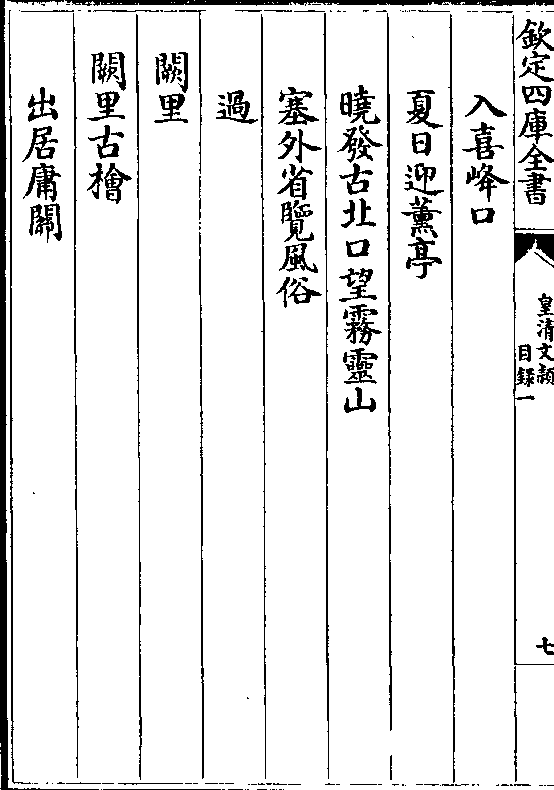 欽定四庫全書
皇清文穎
目録一
七
入喜峰口
夏日迎薰亭
曉發古北口望霧靈山
塞外省覽風俗
過
闕里
闕里古檜
出居庸關